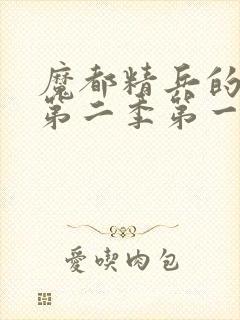 魔都精兵的
第二季第一
愛喫肉包